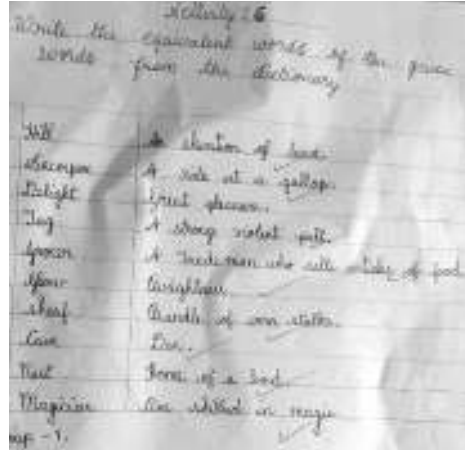 Activity 26
Write the equivalent words of the given
words from the dictionary
Hill An elevation of land.
A ride at a gallop.
Delight Great pleasure.
Tug A strong violent pull.
Grocer A Tradesman who sells articles of food
Glow Brightness
Sheaf Bundle of corn stalks.
Care
Nest Home of a bird.
Magician One skilled in magic